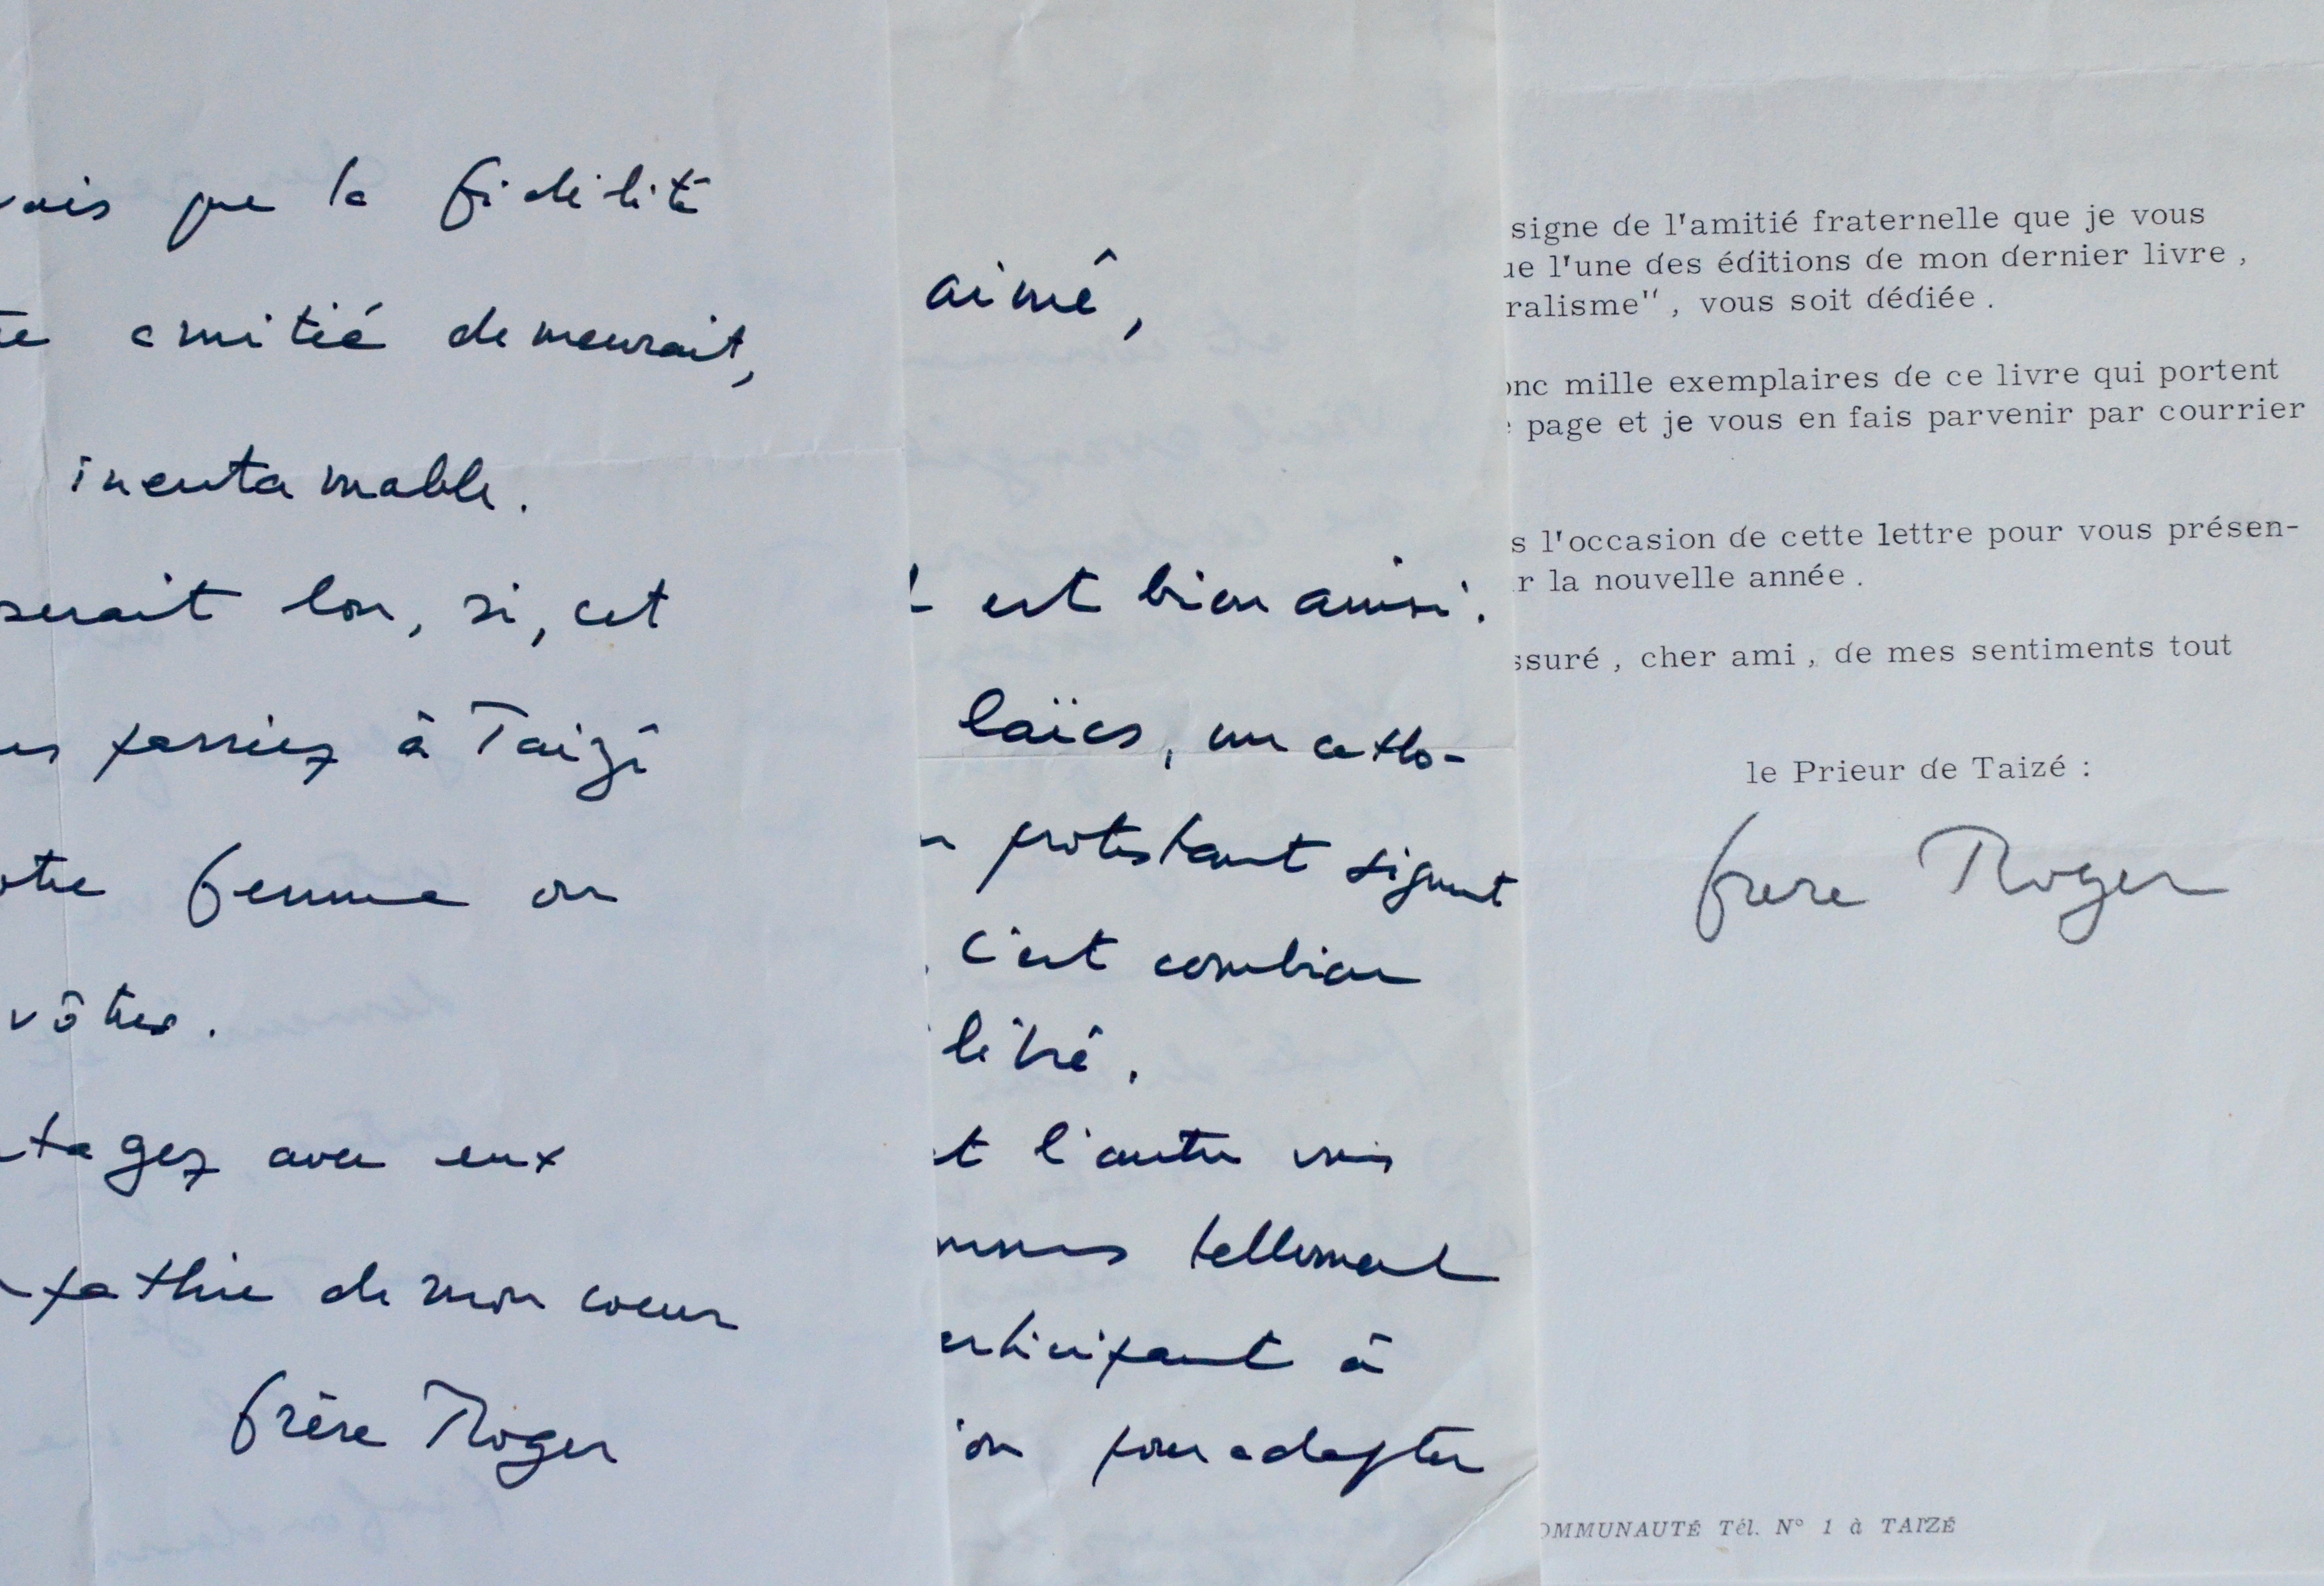 que la fidélité
amitié demeurait,
inentamable.
serait bon, si, cet
passiez à Taizé
femme ou
vôtres.
avec eux
de mon coeur
frère Roger
aimé,
est bien ainsi.
laïcs, un catho-
protestant signent
c'est combien
l'autre
tellement
à
pour adapter
signe de l'amitié fraternelle que je vous
l'une des éditions de mon dernier livre,
ralisme", vous soit dédiée.
mille exemplaires de ce livre qui portent
page et je vous en fais parvenir par courrier
s l'occasion de cette lettre pour vous présen-
r la nouvelle année.
ssuré, cher ami, de mes sentiments tout
le Prieur de Taizé :
frere Roger
OMMUNAUTÉ Tél. N° 1 à TAIZÉ